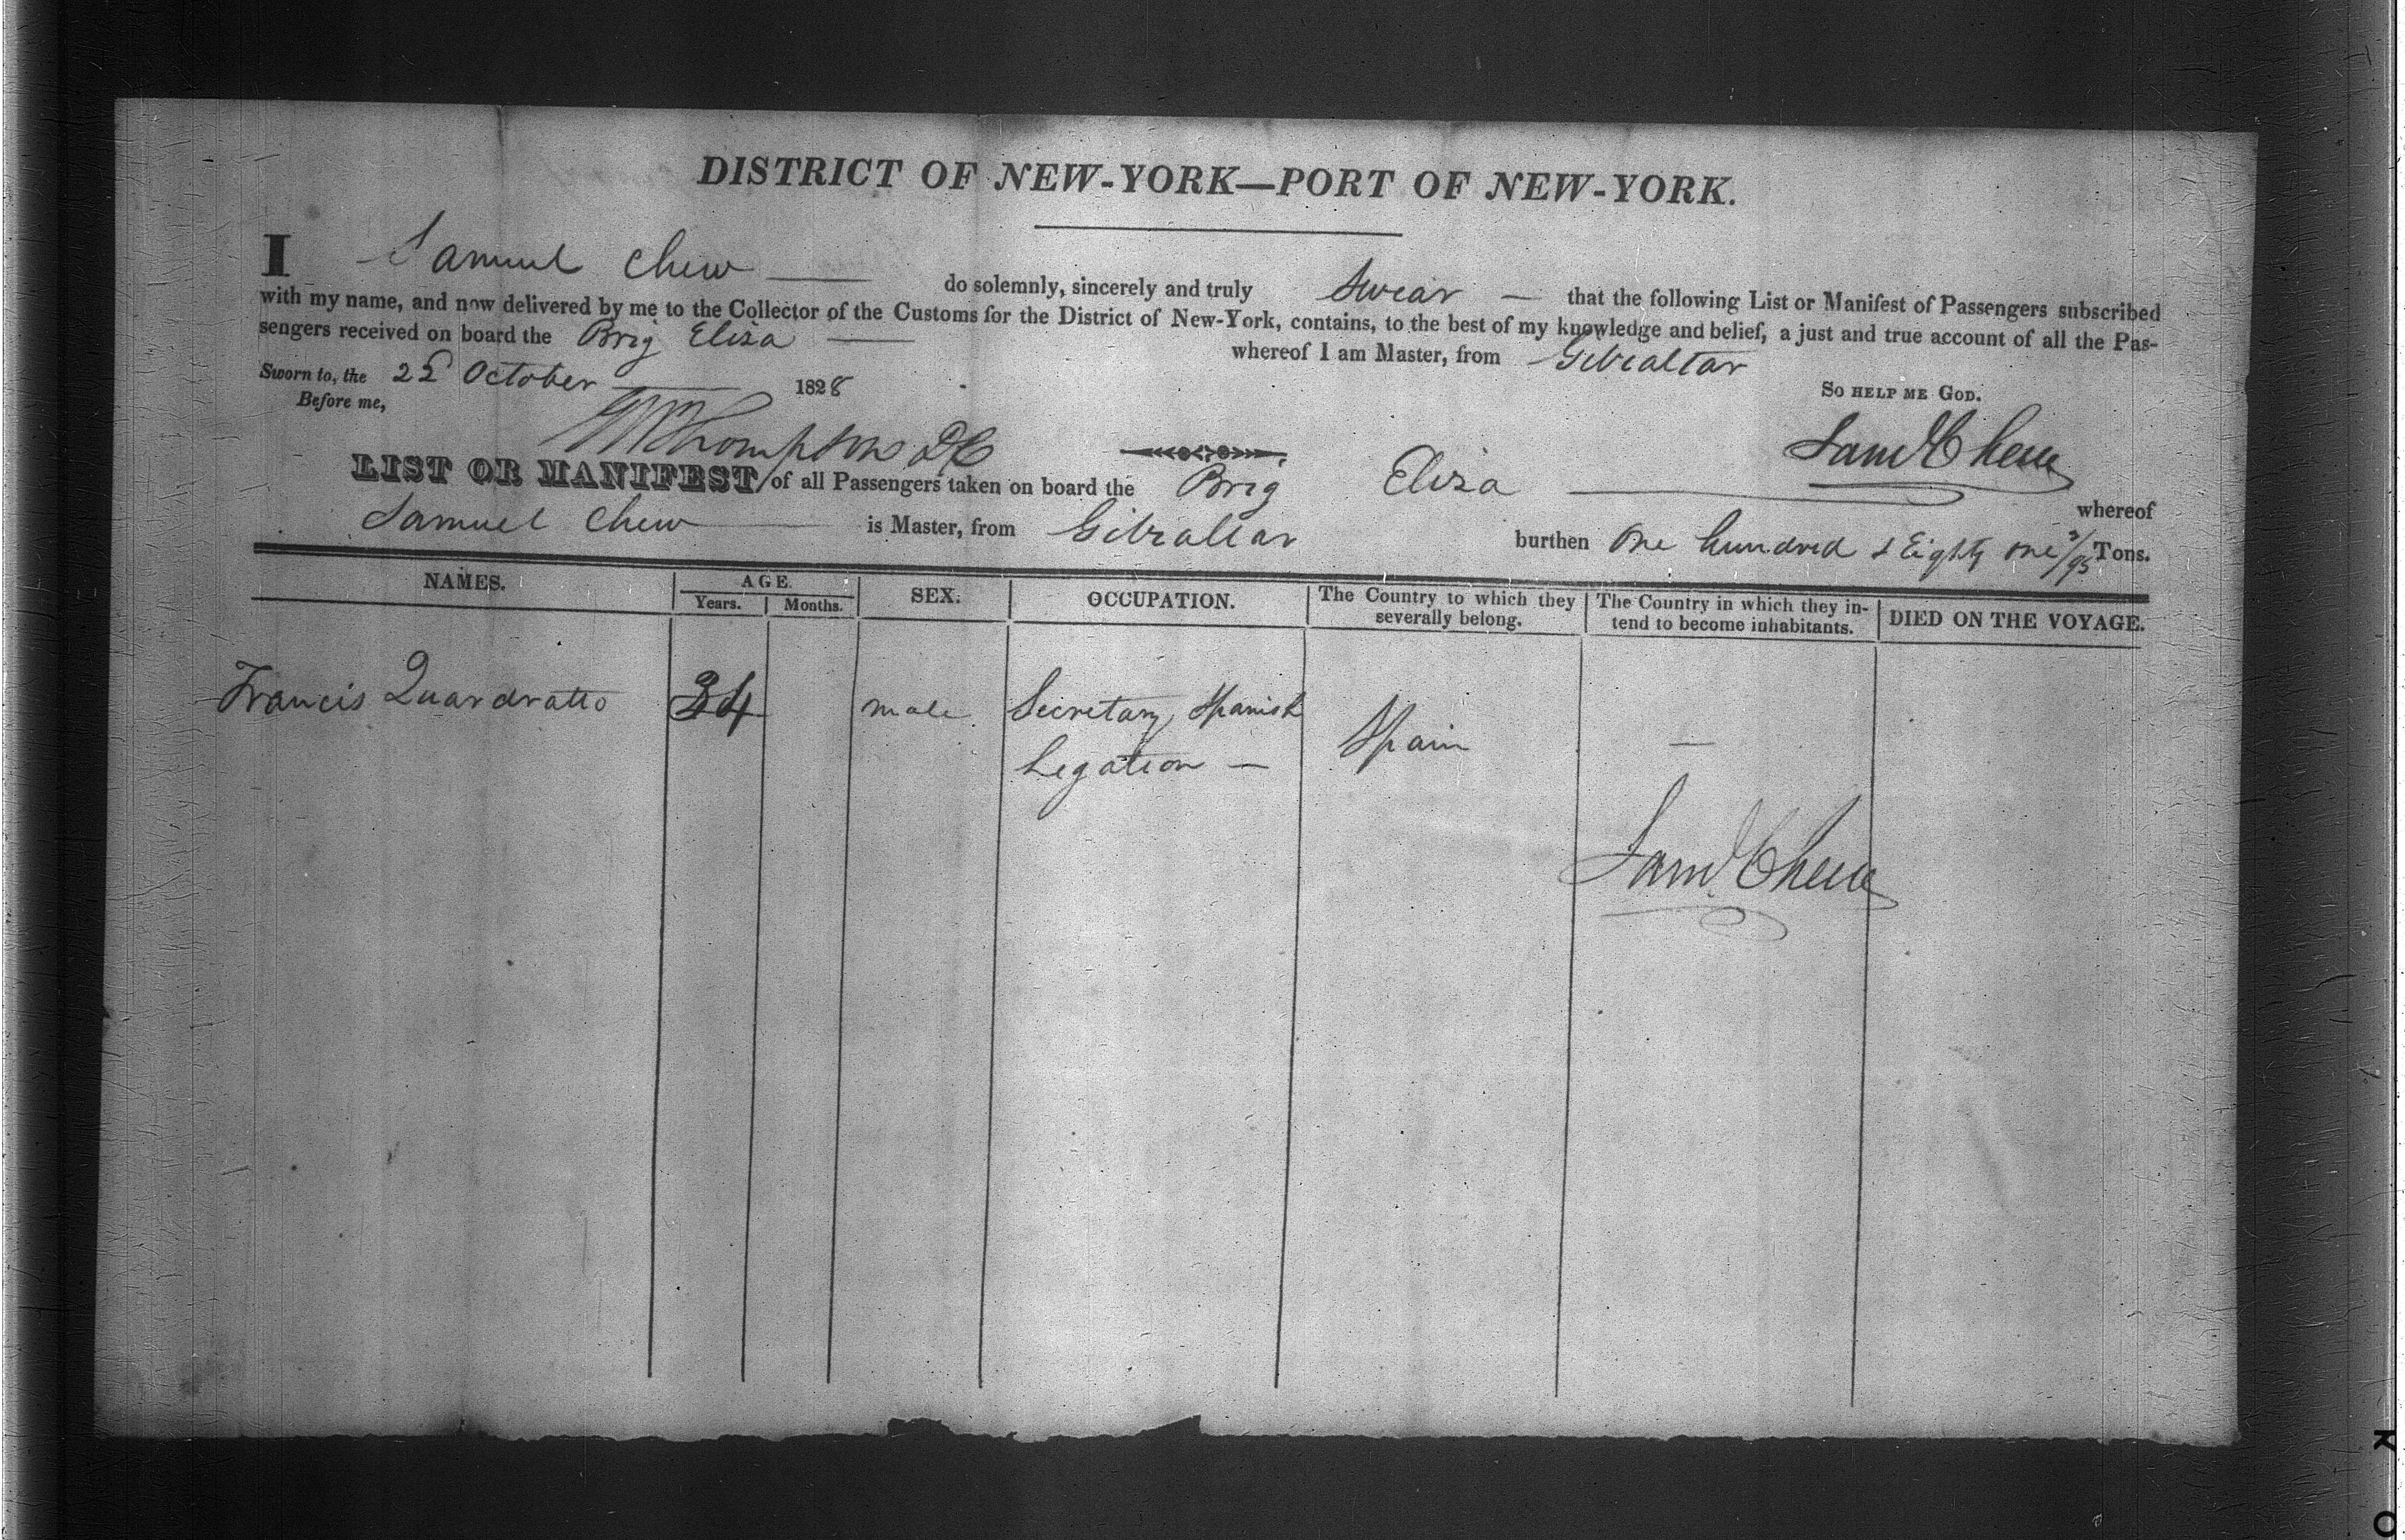 DISTRICT OF NEW-YORK—PORT OF NEW-YORK.
I Samuel Chew — do solemnly, sincerely and truly swear — that the following List or Manifest of Passengers subscribed
with my name, and now delivered by me to the Collector of the Customs for the District of New-York, contains, to the best of my knowledge and belief, a just and true account of all the Pas-
sengers received on board the Brig Eliza — whereof I am Master, from Gibraltar
Sworn to, the 22d October — 1828 So help me God.
Before me,
Thompson DC Saml Chew
LIST OR MANIFEST of all Passengers taken on board the Brig Eliza — whereof
Samuel Chew — is Master, from Gibraltar burthen One hundred & Eighty one /95 Tons.
NAMES. AGE. Years. Months. SEX. OCCUPATION. The Country to which they severally belong. The Country in which they in-tend to become inhabitants. DIED ON THE VOYAGE.
Francis Quardratto 34 male Secretary Spanish
Legation — Spain —
Saml Chew
K O